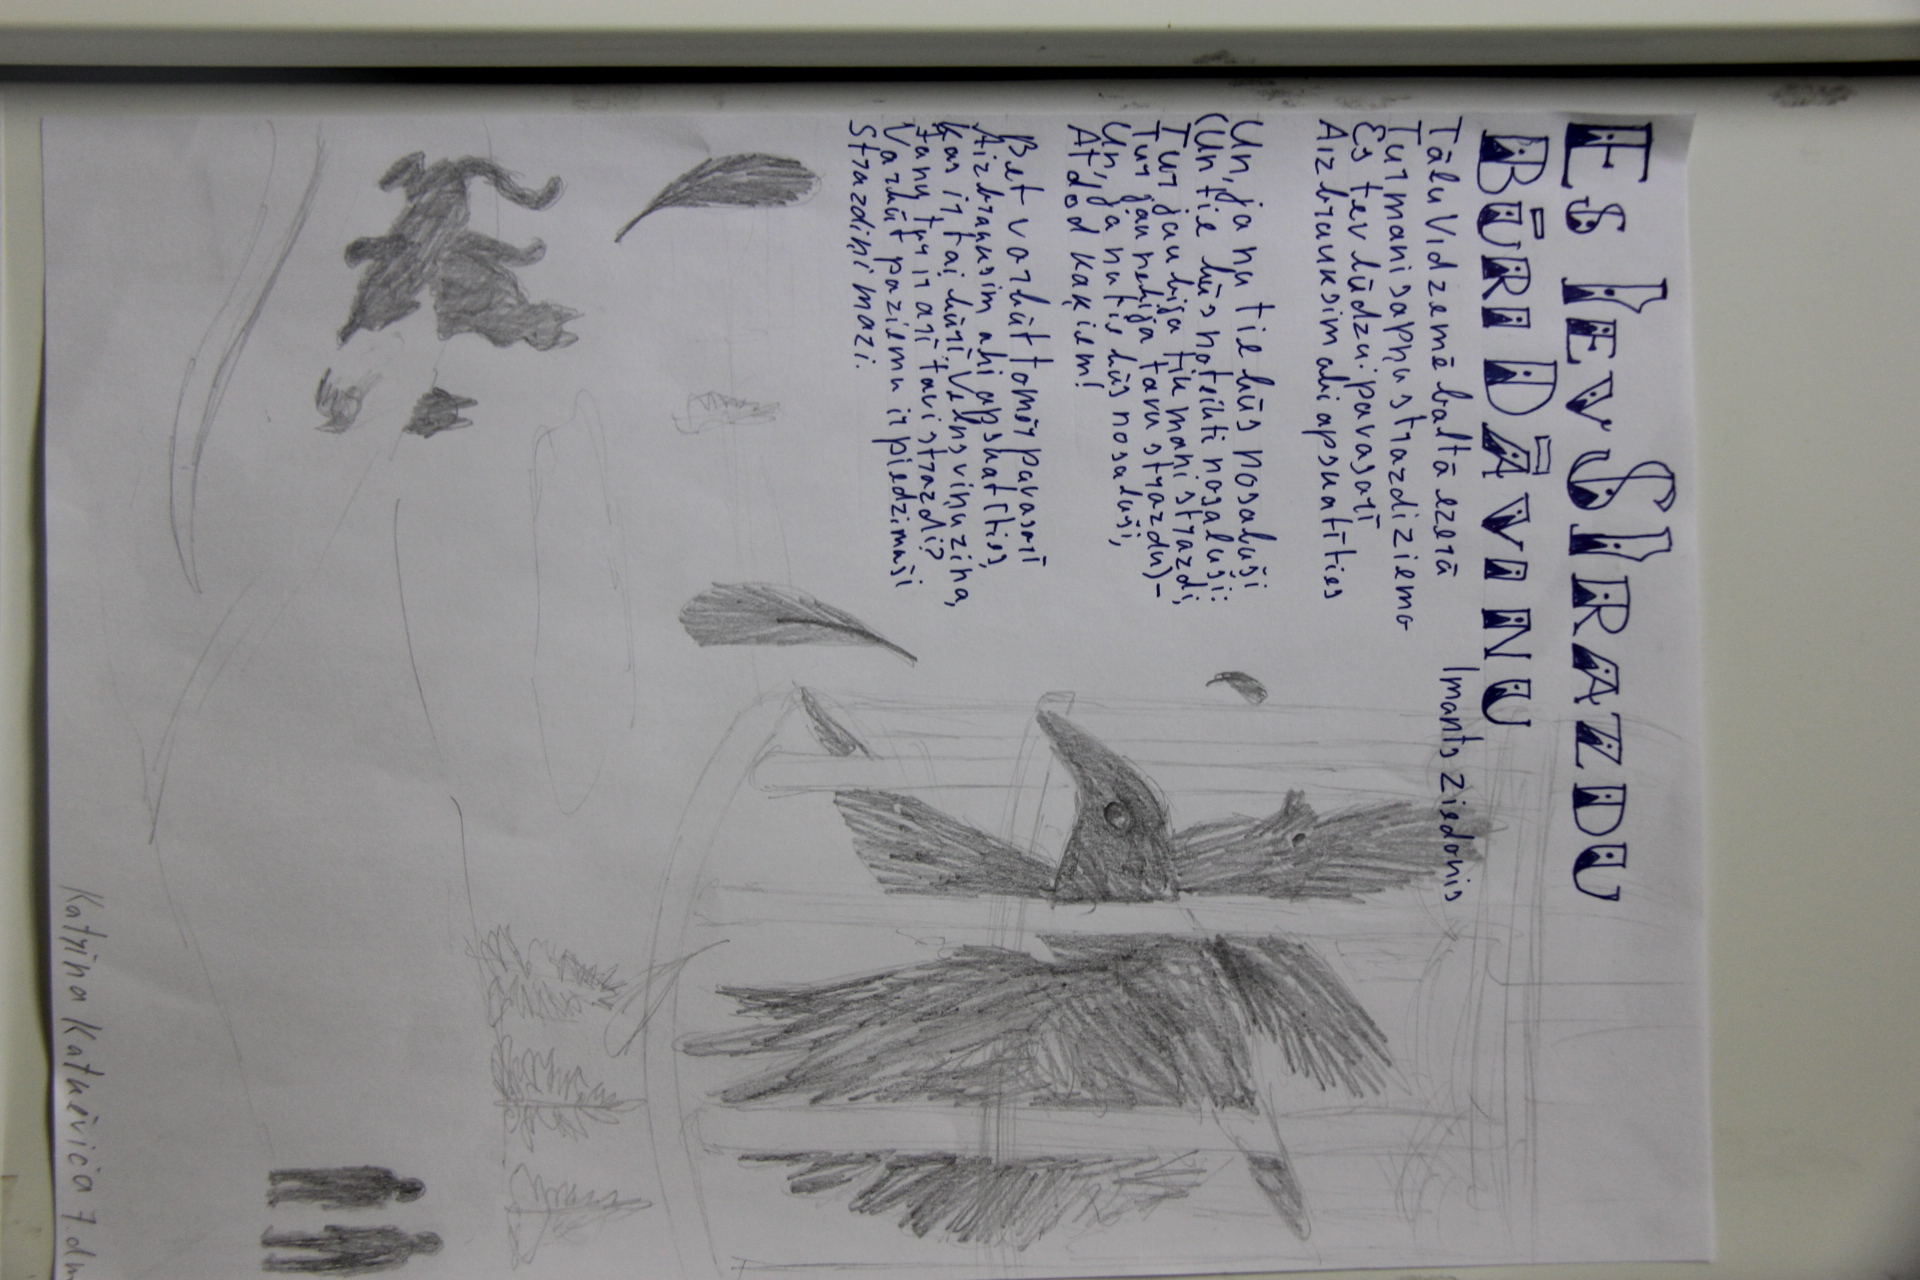 Es Tev Strazdu
Būri Dāvinu
Imants Ziedonis
Tālu Vidzemē baltā ezerā
Tur mani sapņu strazdi ziemo
Es tev lūdzu: pavasarī
Aizbrauksim abi apskatīties
Un, ja nu tie būs nosaluši
(Un tie būs noteikti nosaluši:
Tur jau bija tik mani strazdi,
Tur jau nebija tavu strazdu) –
Un, ja nu tie būs nosaluši,
Atdod kaķiem!
Bet varbūt tomēr pavasarī
Aizbrauksim abi apskatīties,
Kas ir tai būrī. Velns viņu zina,
Tanī tur ir arī tavi strazdi?
Varbūt pa ziemu ir piedzimuši
Strazdiņi mazi.
Katrīna Katkēviča 7.dm